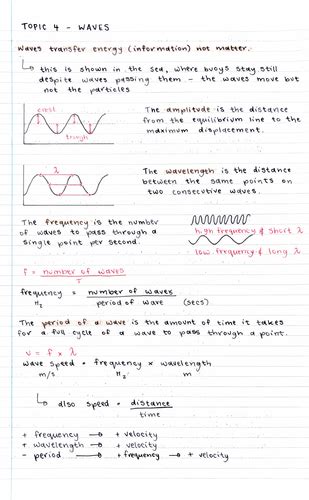 TOPIC 4 - WAVES
Waves transfer energy (information) not matter.
↳ this is shown in the sea, where buoys stay still
despite waves passing them - the waves move but
not the particles
crest
trough
The amplitude is the distance
from the equilibrium line to the
maximum displacement.
λ
The wavelength is the distance
between the same points on
two consecutive waves.
The frequency is the number
of waves to pass through a
single point per second.
high frequency & short λ
low frequency & long λ
f = number of waves
T
frequency = number of waves
Hz period of wave (secs)
The period of a wave is the amount of time it takes
for a full cycle of a wave to pass through a point.
v = f x λ
wave speed = frequency x wavelength
m/s Hz m
↳ also speed = distance
time
+ frequency → + velocity
+ wavelength → + velocity
- period → + frequency → + velocity